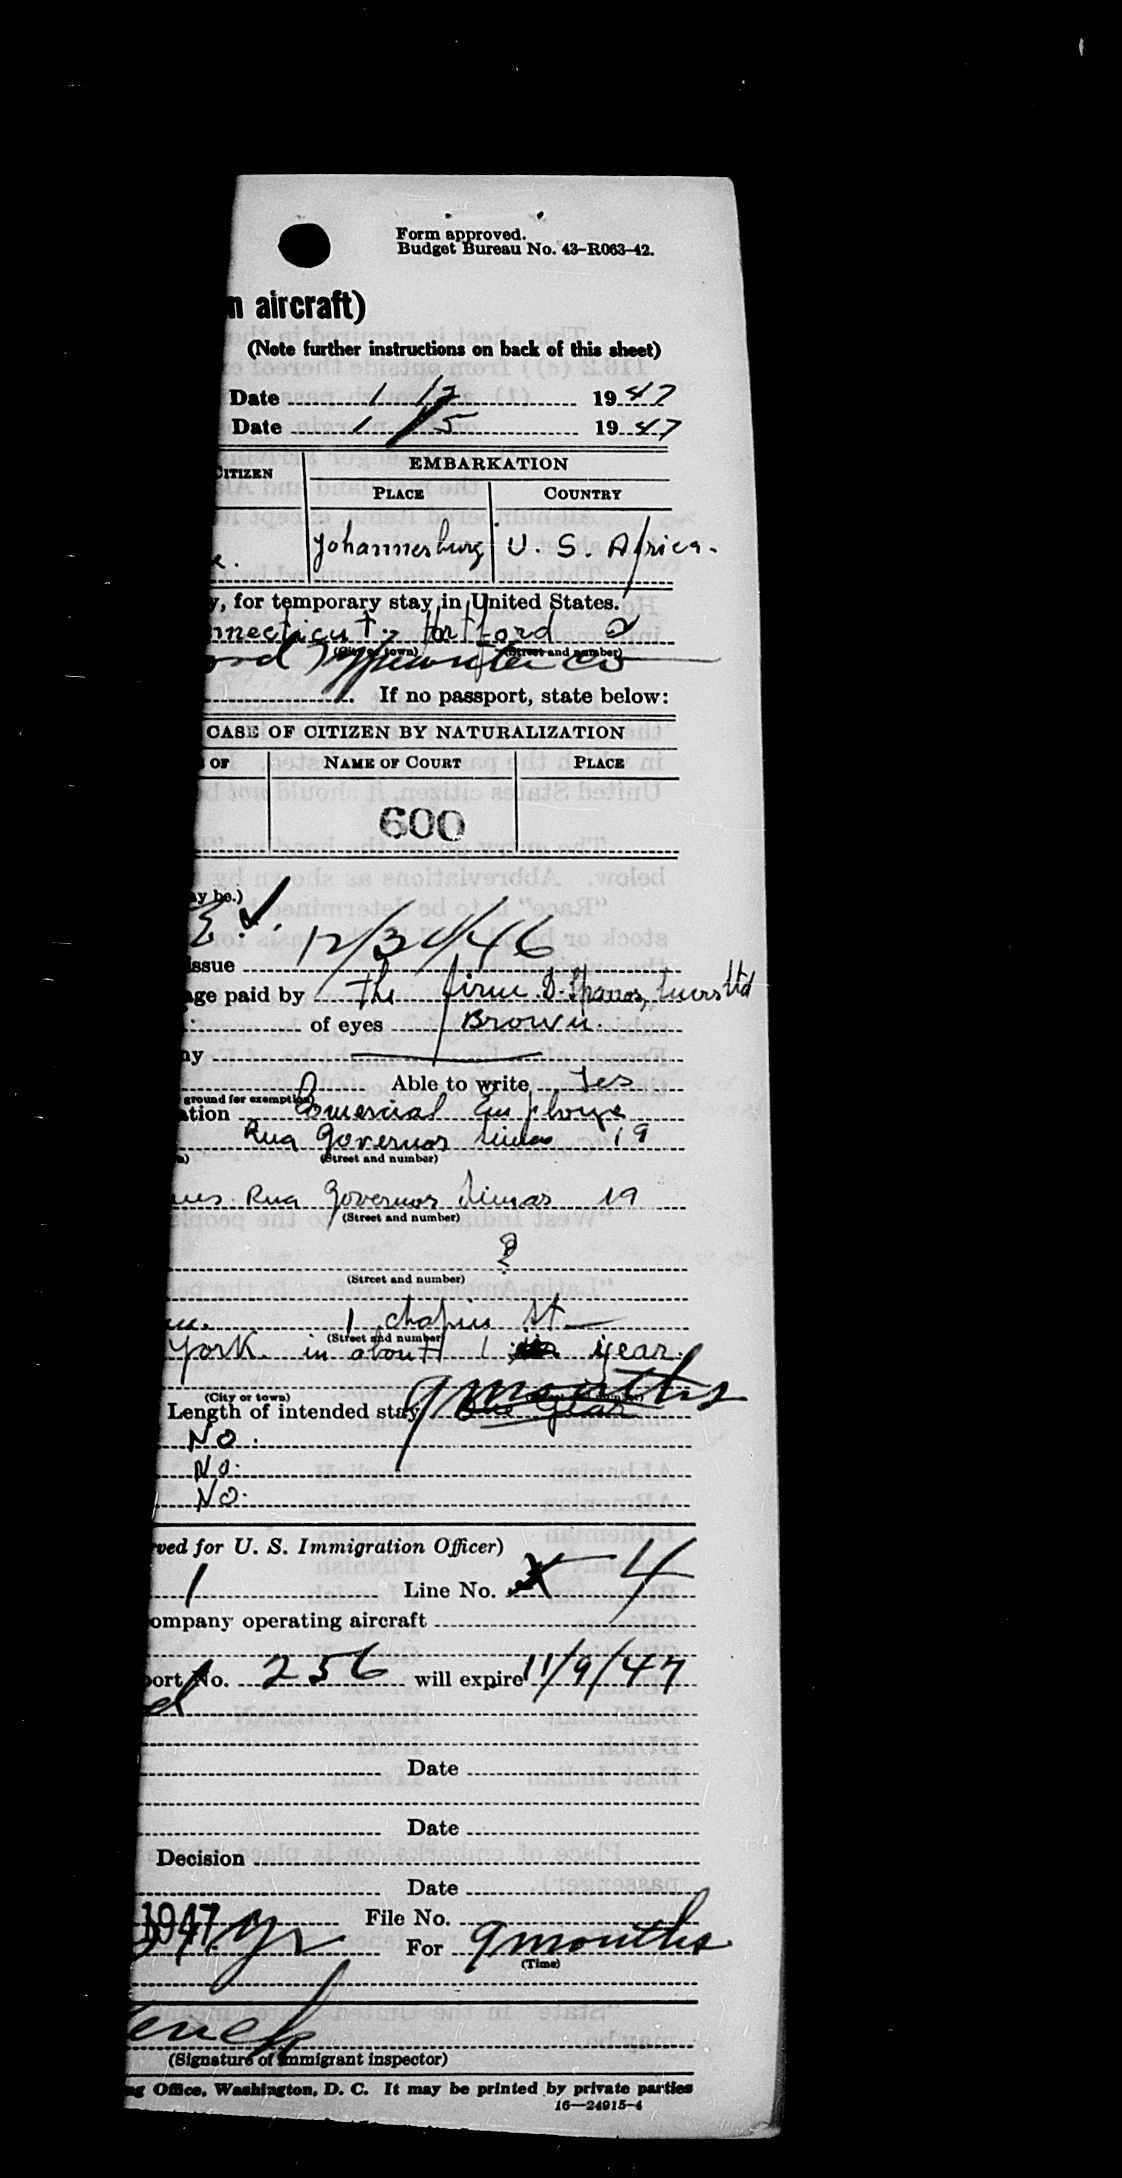 Form approved.
Budget Bureau No. 43-R063-42.
n aircraft)
(Note further instructions on back of this sheet)
Date 1 12 1947
Date 1 15 1947
CITIZEN EMBARKATION
PLACE COUNTRY
Johannesburg U. S. Africa.
y, for temporary stay in United States.
nnecticut, Hartford
(City or town) (Street and number)
ord Typewriter Co
If no passport, state below:
CASE OF CITIZEN BY NATURALIZATION
OF NAME OF COURT PLACE
600
ay be.)
issue 12/31/46
age paid by The firm D. Ltd
of eyes Brown.
ny
Able to write Yes
ground for exemption)
ation Comercial Employe
Rua Governor 19
(Street and number)
Rua Governor Simas 19
(Street and number)
?
(Street and number)
1 chapin St
(Street and number)
York in about 1 year.
(City or town)
9 months
Length of intended stay One Year
No.
No.
No.
rved for U. S. Immigration Officer)
1 Line No. 4
ompany operating aircraft
port No. 256 will expire 11/9/47
Date
Date
Decision
Date
1947 File No.
For 9 months
(Time)
(Signature of immigrant inspector)
ng Office, Washington, D. C. It may be printed by private parties
16—24915-4